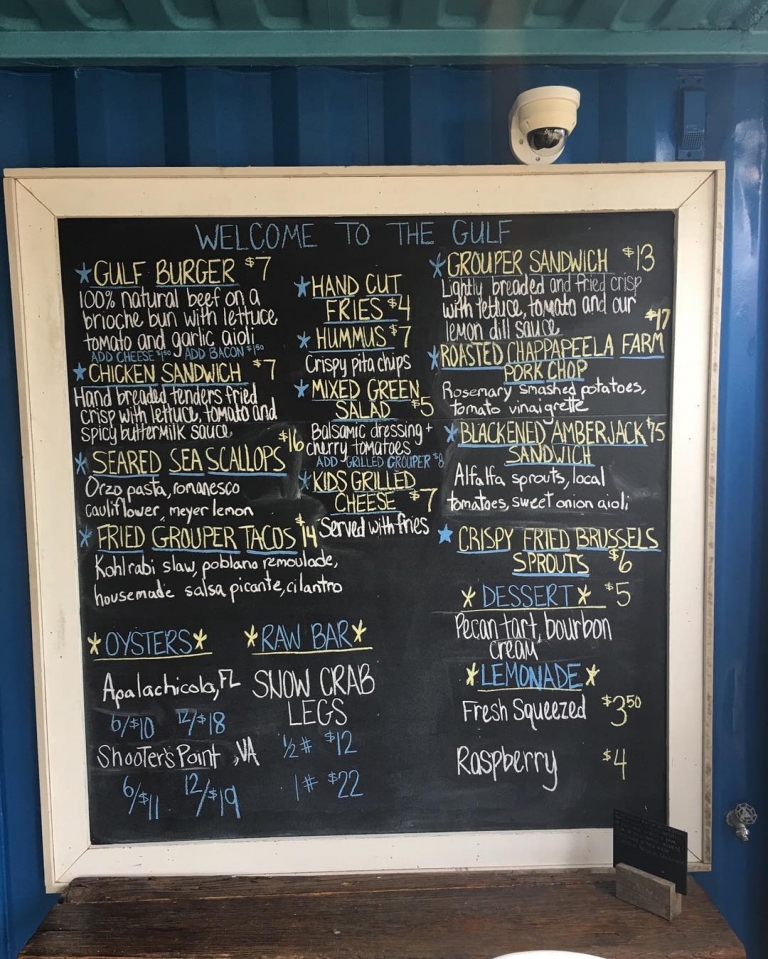 WELCOME TO THE GULF
*GULF BURGER $7
100% natural beef on a
brioche bun with lettuce
tomato and garlic aioli
ADD CHEESE $1.50 ADD BACON $1.50
*CHICKEN SANDWICH $7
Hand breaded tenders fried
crisp with lettuce, tomato and
spicy buttermilk sauce
*SEARED SEA SCALLOPS $16
Orzo pasta, romanesco
cauliflower, meyer lemon
*FRIED GROUPER TACOS $14
Kohlrabi slaw, poblano remoulade,
housemade salsa picante, cilantro
*HAND CUT
FRIES $4
*HUMMUS $7
Crispy pita chips
*MIXED GREEN
SALAD $5
Balsamic dressing +
cherry tomatoes
ADD GRILLED GROUPER $8
*KIDS GRILLED
CHEESE $7
Served with fries
*GROUPER SANDWICH $13
Lightly breaded and fried crisp
with lettuce, tomato and our
lemon dill sauce
$17
*ROASTED CHAPPAPEELA FARM
PORK CHOP
Rosemary smashed potatoes,
tomato vinaigrette
*BLACKENED AMBERJACK $15
SANDWICH
Alfalfa sprouts, local
tomatoes, sweet onion aioli
*CRISPY FRIED BRUSSELS
SPROUTS $6
*DESSERT* $5
Pecan tart, bourbon
cream
*LEMONADE*
Fresh Squeezed $3.50
Raspberry $4
*OYSTERS*
Apalachicola, FL
6/$10 12/$18
Shooter's Point, VA
6/$11 12/$19
*RAW BAR*
SNOW CRAB
LEGS
½# $12
1# $22